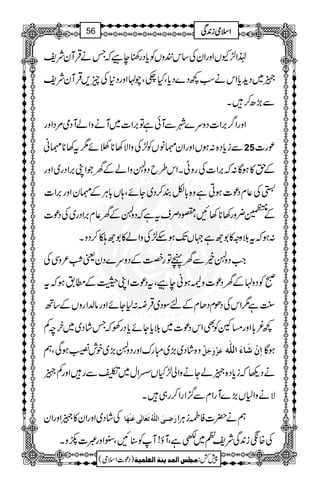 اسلامی زندگی
56
لہٰذا لڑکیوں اور ان کی ساس نندوں کو یاد رکھنا چاہیے کہ جس نے قرآن شریف
جہیز میں دیدیا اس نے سب کچھ دے دیا، کیا چکی، چولہا اور دنیا کی چیزیں قرآن شریف
سے بڑھ کر ہیں۔
اور اگر بارات دوسرے شہر سے آئی ہے تو بارات میں آنے والے آدمی مرد اور
عورت 25 سے زیادہ نہ ہوں اور ان مہمانوں کو لڑکی والا کھانا کھلائے مگر یہ کھانا مہمانی
کے حق کا ہوگا نہ کہ بارات کی روٹی۔ اسی طرح دولہن والے کے گھر جو اپنی برادری اور
بستی کی عام دعوت ہوتی ہے وہ بالکل بند کر دی جائے، ہاں باہر کے مہمان اور بارات
کے منتظمین ضرور کھانا کھائیں مقصود صرف یہ ہے کہ دولہن کے گھر عام برادری کی دعوت
نہ ہو کہ یہ بلاوجہ کا بوجھ ہے جہاں تک ہو سکے لڑکی والے کا بوجھ ہلکا کر دو۔
جب دولہن خیر سے گھر پہنچے تو رخصت کے دوسرے دن یعنی شب عروسی کی
صبح کو دولہا کے گھر دعوت ولیمہ ہونی چاہیے، یہ دعوت اپنی حیثیت کے مطابق ہو کہ یہ
سنت ہے مگر اس کی دھوم دھام کے لئے سودی قرضہ نہ لیا جائے اور مالداروں کے ساتھ
کچھ غربا اور مساکین کو بھی اس دعوت میں بلایا جائے یاد رکھو کہ جس شادی میں خرچہ کم
ہوگا اِنْ شَآءَ اللّٰه عَزَّوَجَلَّ وہ شادی بڑی مبارک اور دولہن بڑی خوش نصیب ہوگی، ہم
نے دیکھا کہ زیادہ جہیز لے جانے والی لڑکیاں سسرال میں تکلیف سے رہیں اور کم جہیز
لانے والیاں بڑے آرام سے گزارا کر رہی ہیں۔
ہم نے حضرت فاطمہ زہرا رَضِیَ اللّٰہُ تَعَالٰی عَنْہَا کی شادی اور ان کا جہیز اور ان
کی خانگی زندگی شریف نظم میں لکھی ہے، آؤ! آپ کو سنائیں، سنو اور عبرت پکڑو۔
پیش کش: مجلس المدینة العلمیة (دعوت اسلامی)